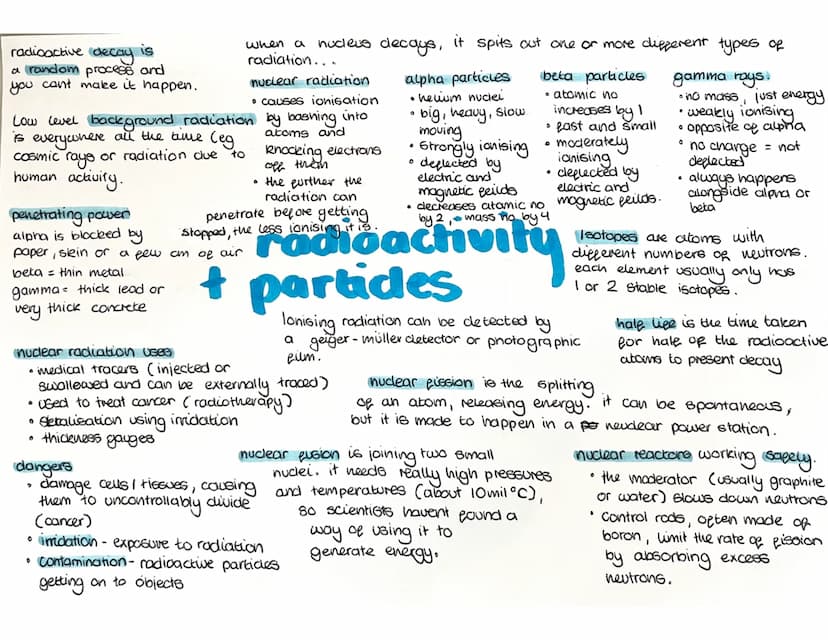 radioactive decay is
a random process and
you cant make it happen.
Low level background radiation
is everywhere all the time (eg
cosmic rays or radiation due to
human activity.
when a nucleus decays, it spits out one or more different types of
radiation...
nuclear radiation
• causes ionisation
by bashing into
atoms and
knocking electrons
off them
• the further the
radiation can
penetrate before getting
stopped, the less ionising it is.
alpha particles
• helium nuclei
• big, heavy, slow
moving
• strongly ionising
• deflected by
electric and
magnetic feilds
• decreases atomic no
by 2, mass no by 4
beta particles
• atomic no
increases by 1
• fast and small
• moderately
ionising
• deflected by
electric and
magnetic feilds.
gamma rays:
• no mass, just energy
• weakly ionising
• opposite of alpha
• no charge = not
deflected
• always happens
alongside alpha or
beta
penetrating power
alpha is blocked by
paper, skin or a few cm of air
beta = thin metal
gamma = thick lead or
very thick concrete
radioactivity
+ particles
Isotopes are atoms with
different numbers of neutrons.
each element usually only has
1 or 2 stable isotopes.
Ionising radiation can be detected by
a geiger-müller detector or photographic
film.
half life is the time taken
for half of the radioactive
atoms to present decay
nuclear radiation uses
• medical tracers (injected or
swallowed and can be externally traced)
• used to treat cancer (radiotherapy)
• sterilisation using irridation
• thickness gauges
nuclear fission is the splitting
of an atom, releasing energy. it can be spontaneous,
but it is made to happen in a neuclear power station.
dangers
• damage cells/tissues, causing
them to uncontrollably divide
(cancer)
• irridation - exposure to radiation
• contamination - radioactive particles
getting on to objects
nuclear fusion is joining two small
nuclei. it needs really high pressures
and temperatures (about 10mil°C),
so scientists havent found a
way of using it to
generate energy.
nuclear reactors working safely.
• the moderator (usually graphite
or water) slows down neutrons
• control rods, often made of
boron, limit the rate of fission
by absorbing excess
neutrons.